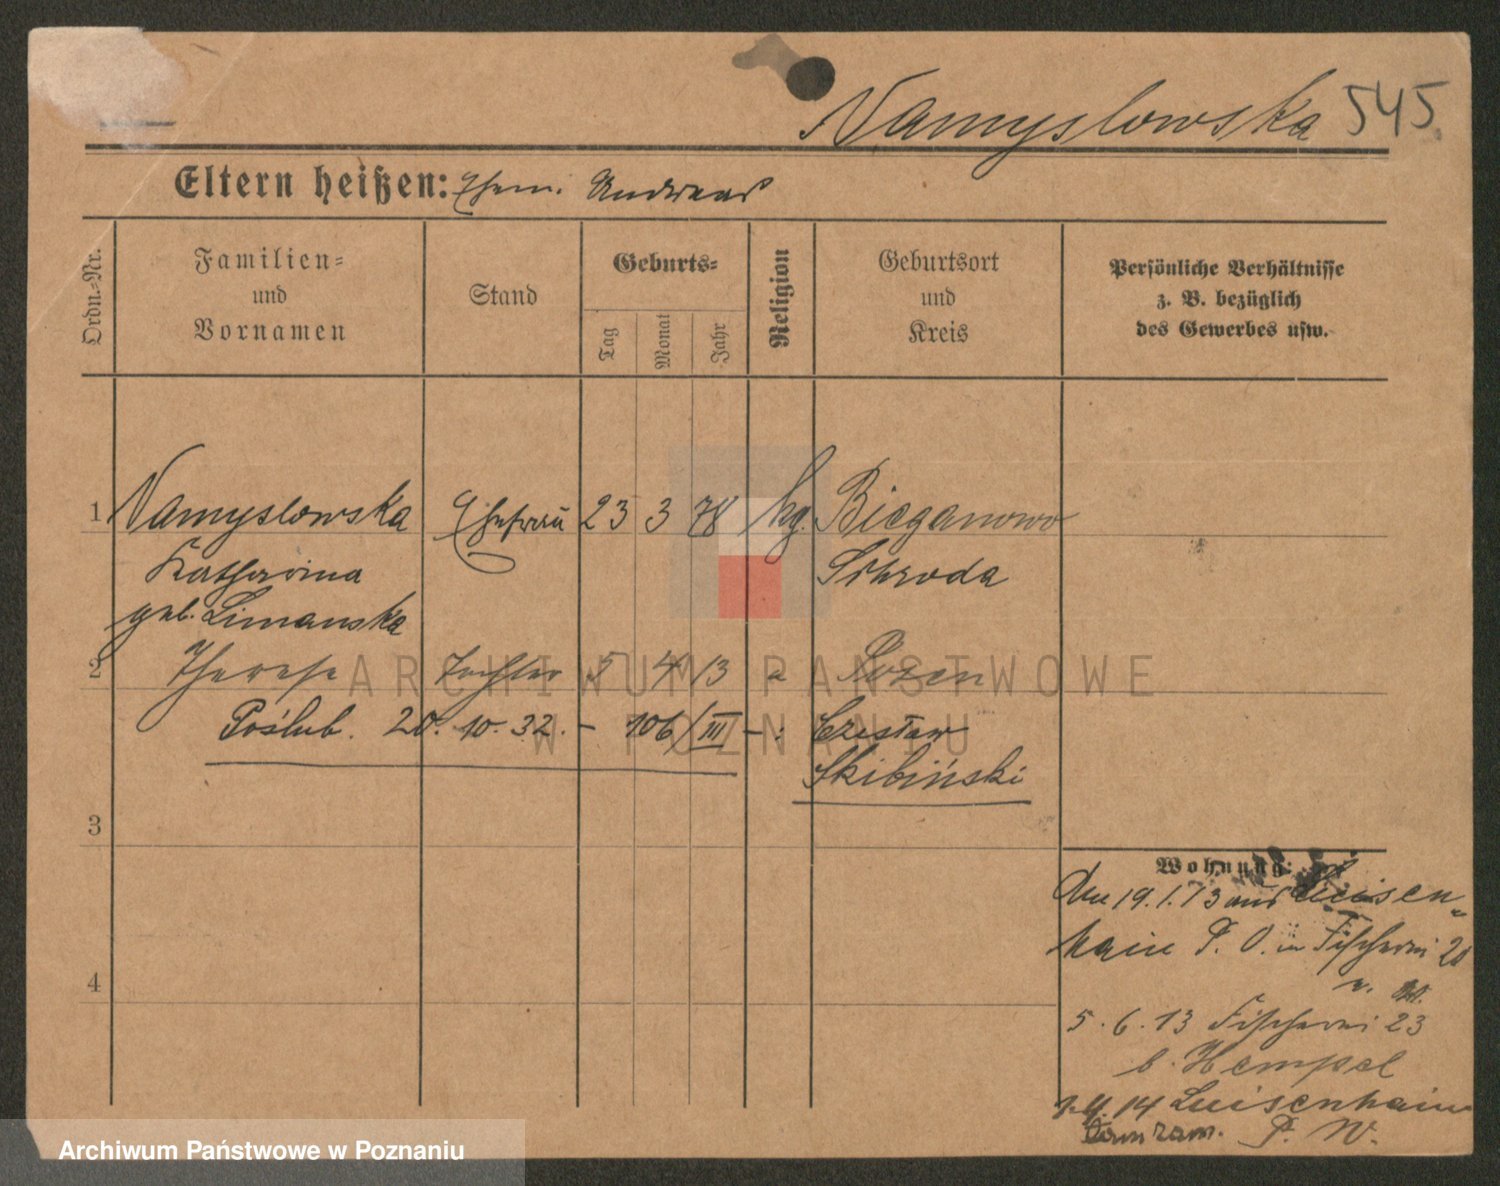 Namyslowska 545.
Eltern heißen: Ehem. Andreas
Ordn.-Nr.
Familien-
und
Vornamen
Stand
Geburts-
Tag
Monat
Jahr
Religion
Geburtsort
und
Kreis
Persönliche Verhältnisse
z. B. bezüglich
des Gewerbes usw.
1 Namyslowska Ehefrau 23 3 78 kg. Bieganowo
Katharina Schroda
geb. Limanska
2 Therese Tochter 5 4 13 " Posen
Poślub. 20. 10. 32. - 106/III - : Czesław
Skibiński
3
4
Wohnung:
Am 19.1.13 aus Luisen-
hain P. O. in Fischerei 20
5.6.13 Fischerei 23
b. Hempel
14 Luisenhain
P. W.
ARCHIWUM PAŃSTWOWE
W POZNANIU
Archiwum Państwowe w Poznaniu